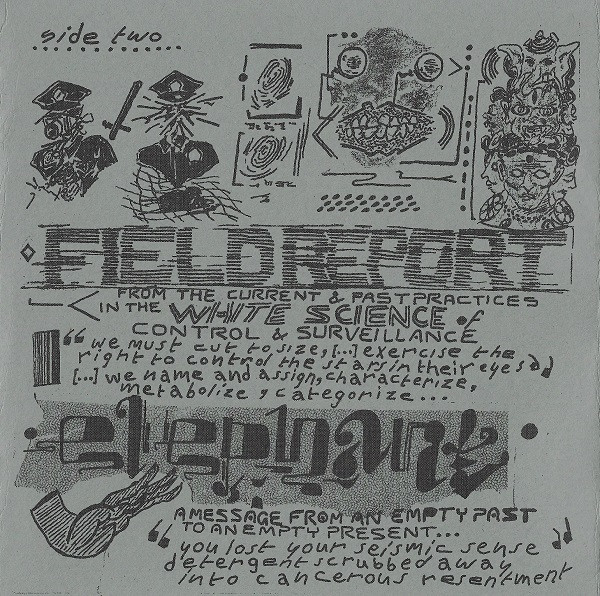 side two
FIELD REPORT
FROM THE CURRENT & PAST PRACTICES
IN THE WHITE SCIENCE of
CONTROL & SURVEILLANCE
"we must cut to size, [...] exercise the
right to control the stars in their eyes"
[...] we name and assign, characterize,
metabolize, categorize...
elephank
A MESSAGE FROM AN EMPTY PAST
TO AN EMPTY PRESENT...
"you lost your seismic sense
detergent scrubbed away
into cancerous resentment"